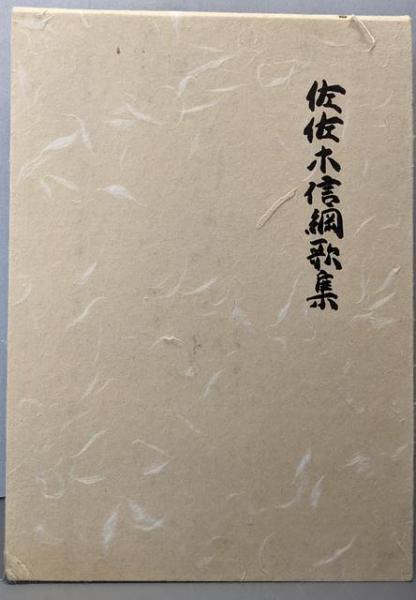 佐佐木信綱歌集